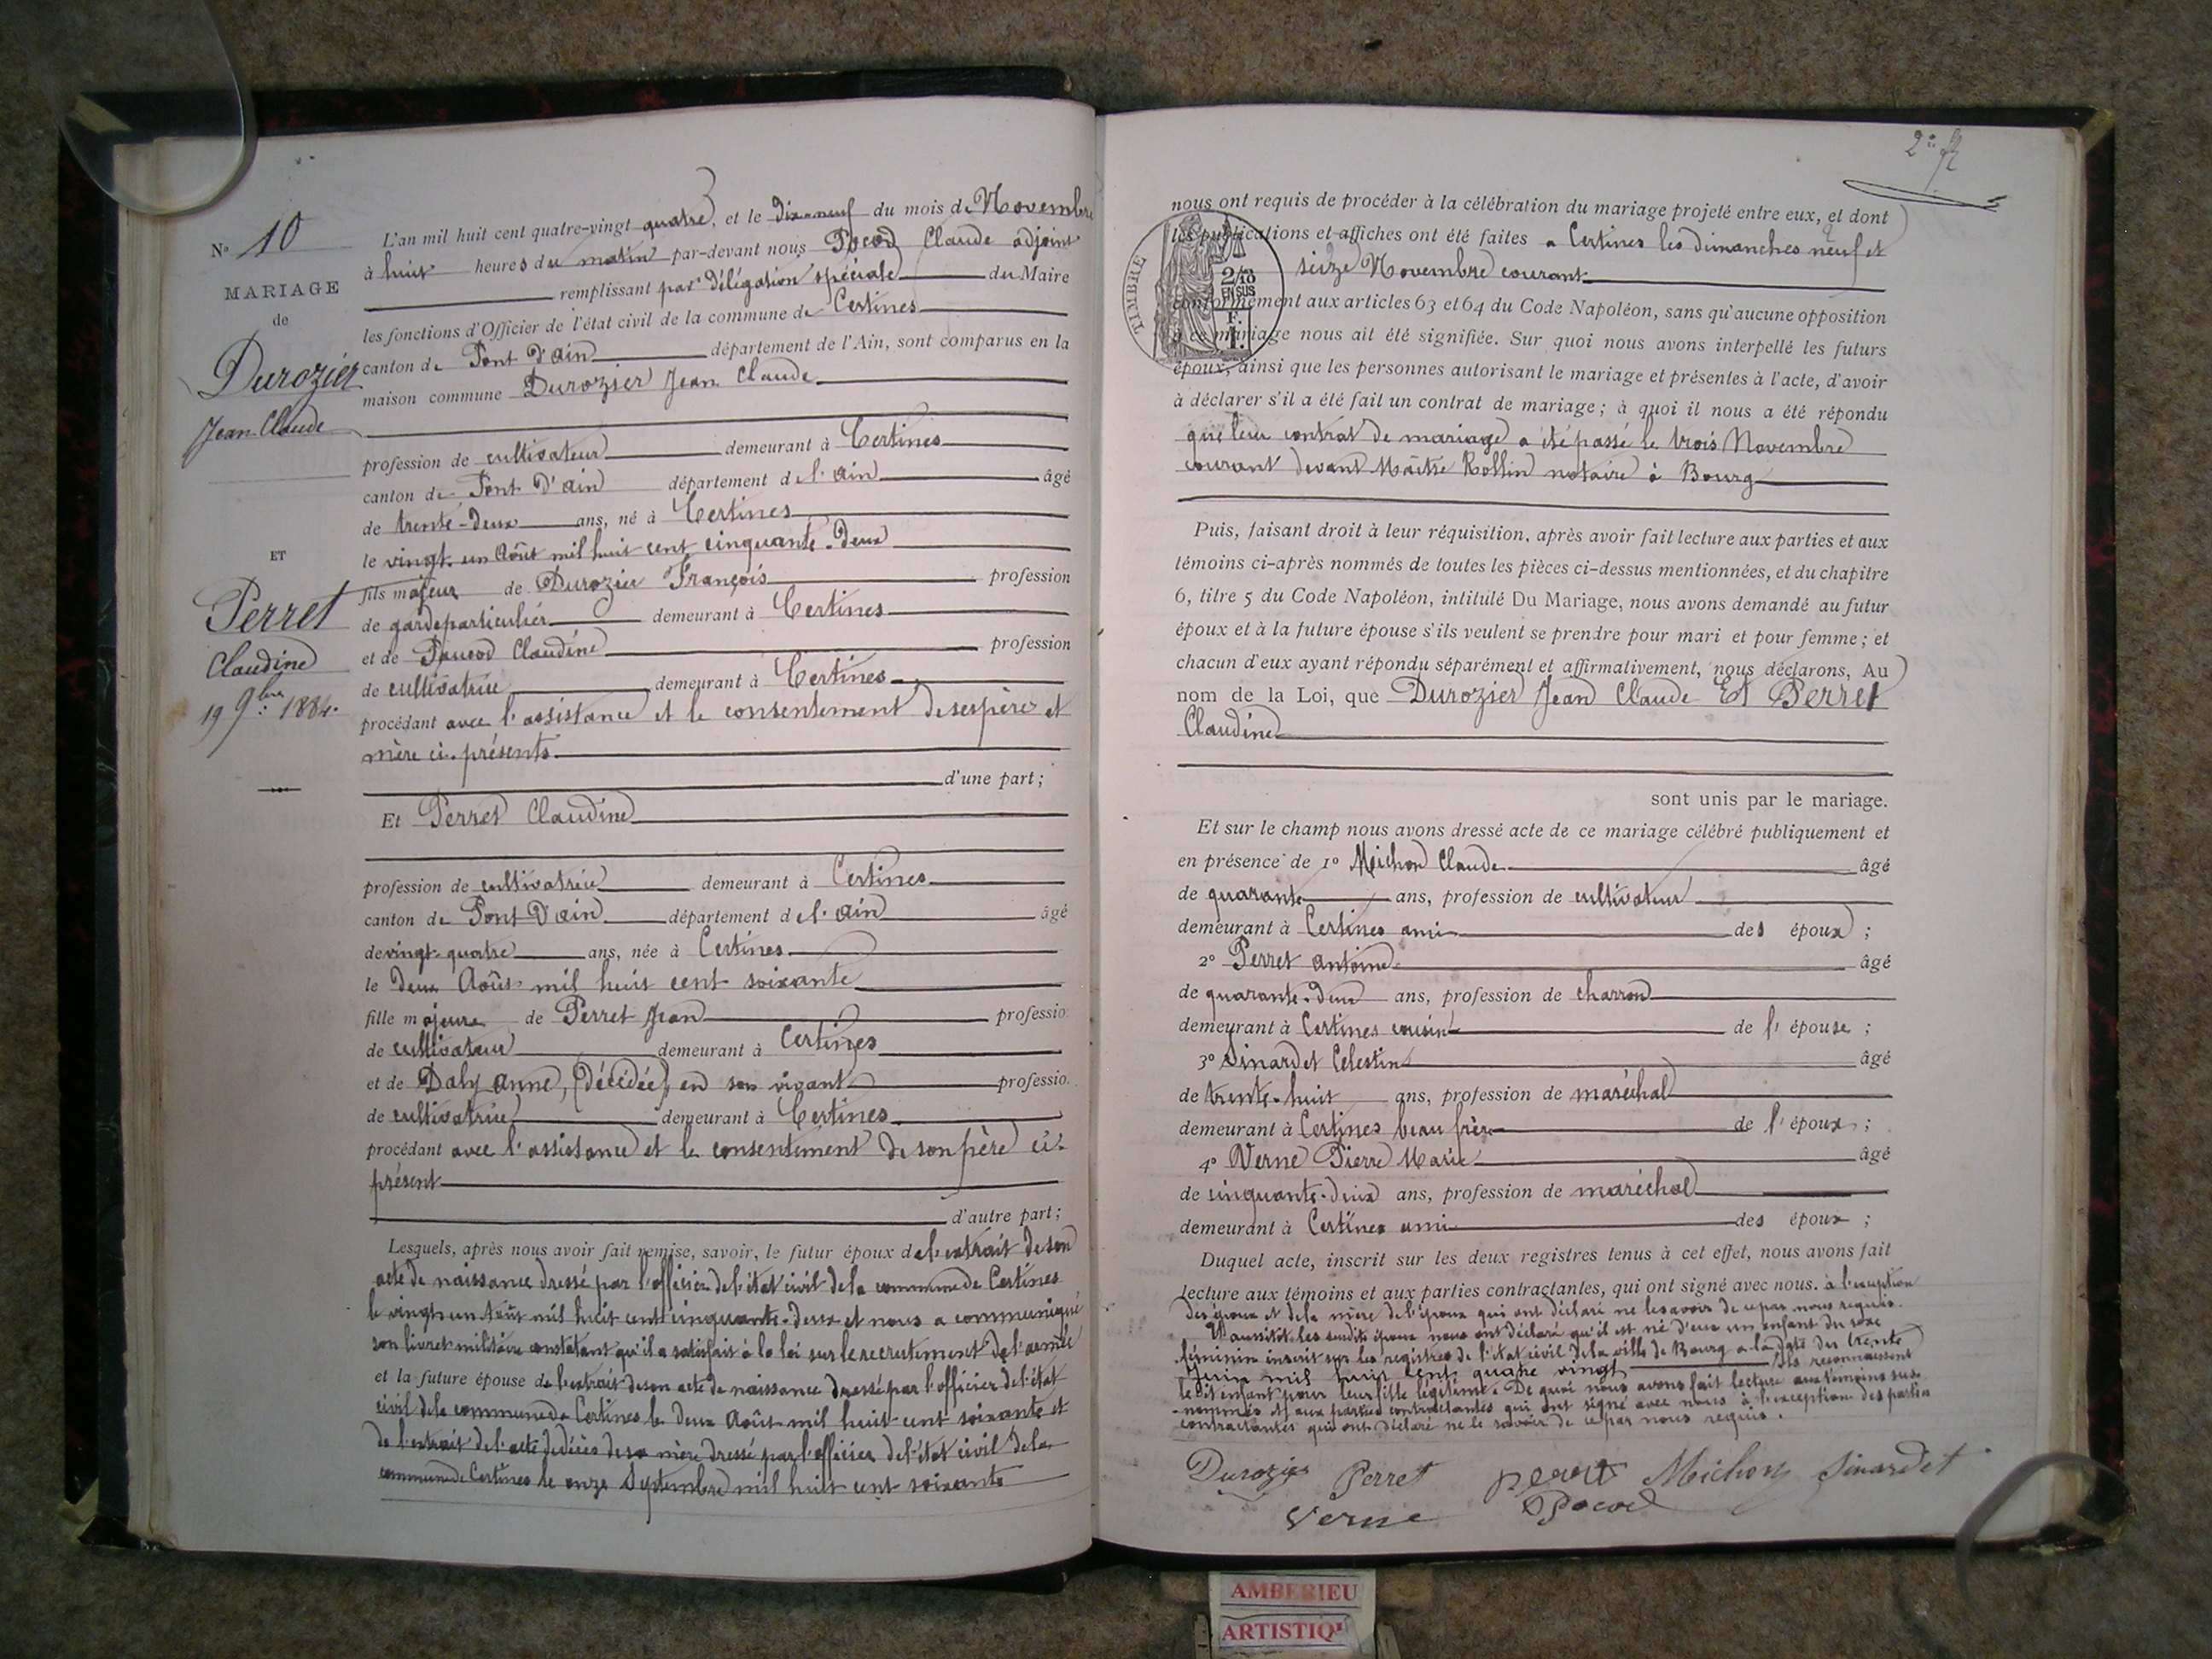 N° 10
MARIAGE
de
Durozier
Jean Claude
ET
Perret
Claudine
19 9bre 1884.
L'an mil huit cent quatre-vingt quatre, et le dix-neuf du mois de Novembre
à huit heures du matin par-devant nous Pocod Claude adjoint
remplissant par délégation spéciale du Maire
les fonctions d'Officier de l'état civil de la commune de Certines
canton de Pont d'ain département de l'Ain, sont comparus en la
maison commune Durozier Jean Claude
profession de cultivateur demeurant à Certines
canton de Pont d'ain département de l'ain âgé
de trente-deux ans, né à Certines
le vingt un Août mil huit cent cinquante-deux
fils majeur de Durozier François profession
de garde particulier demeurant à Certines
et de Claudine profession
de cultivatrice demeurant à Certines
procédant avec l'assistance et le consentement de ses père et
mère ci-présents
d'une part;
Et Perret Claudine
profession de cultivatrice demeurant à Certines
canton de Pont D'ain département de l'ain âgé
de vingt-quatre ans, née à Certines
le deux Août mil huit cent soixante
fille majeure de Perret Jean professio
de cultivateur demeurant à Certines
et de Daly anne, (décédée) en son vivant professio.
de cultivatrice demeurant à Certines
procédant avec l'assistance et le consentement de son père ci-
présent
d'autre part;
Lesquels, après nous avoir fait remise, savoir, le futur époux de l'extrait de son
acte de naissance dressé par l'officier de l'état civil de la commune de Certines
le vingt un Août mil huit cent cinquante-deux et nous a communiqué
son livret militaire constatant qu'il a satisfait à la loi sur le recrutement de l'armée
et la future épouse de l'extrait de son acte de naissance dressé par l'officier de l'état
civil de la commune de Certines le deux Août mil huit cent soixante et
de l'extrait de l'acte de décès de sa mère dressé par l'officier de l'état civil de la
commune de Certines le onze Septembre mil huit cent soixante
nous ont requis de procéder à la célébration du mariage projeté entre eux, et dont
les publications et affiches ont été faites a Certines les dimanches neuf et
seize Novembre courant
conformément aux articles 63 et 64 du Code Napoléon, sans qu'aucune opposition
à ce mariage nous ait été signifiée. Sur quoi nous avons interpellé les futurs
époux, ainsi que les personnes autorisant le mariage et présentes à l'acte, d'avoir
à déclarer s'il a été fait un contrat de mariage; à quoi il nous a été répondu
que leur contrat de mariage a été passé le trois Novembre
courant devant Maître Rollin notaire à Bourg
Puis, faisant droit à leur réquisition, après avoir fait lecture aux parties et aux
témoins ci-après nommés de toutes les pièces ci-dessus mentionnées, et du chapitre
6, titre 5 du Code Napoléon, intitulé Du Mariage, nous avons demandé au futur
époux et à la future épouse s'ils veulent se prendre pour mari et pour femme; et
chacun d'eux ayant répondu séparément et affirmativement, nous déclarons, Au
nom de la Loi, que Durozier Jean Claude Et Perret
Claudine
sont unis par le mariage.
Et sur le champ nous avons dressé acte de ce mariage célébré publiquement et
en présence de 1° Michon Claude âgé
de quarante ans, profession de cultivateur
demeurant à Certines ami des époux;
2° Perret antoine âgé
de quarante-deux ans, profession de charron
demeurant à Certines cousin de l'épouse;
3° Sinardet Celestin âgé
de trente-huit ans, profession de maréchal
demeurant à Certines beau frère de l'époux;
4° Verne Pierre Marie âgé
de cinquante-deux ans, profession de maréchal
demeurant à Certines ami des époux;
Duquel acte, inscrit sur les deux registres tenus à cet effet, nous avons fait
lecture aux témoins et aux parties contractantes, qui ont signé avec nous. à l'exception
des époux et de la mère de l'époux qui ont déclaré ne le savoir de ce par nous requis.
Et aussitôt les susdits époux nous ont déclaré qu'il est né d'eux un enfant du sexe
féminin inscrit sur les registres de l'état civil de la ville de Bourg a la date des trente
Juin mil huit cent quatre vingt Ils reconnaissent
le dit enfant pour leur fille légitime. De quoi nous avons fait lecture aux témoins sus-
nommés et aux parties contractantes qui ont signé avec nous à l'exception des parties
contractantes qui ont déclaré ne le savoir de ce par nous requis.
Durozier Perret Perret Michon Sinardet
Verne Pocod
TIMBRE
2/10
EN SUS
F.
1.
AMBERIEU
ARTISTIQU